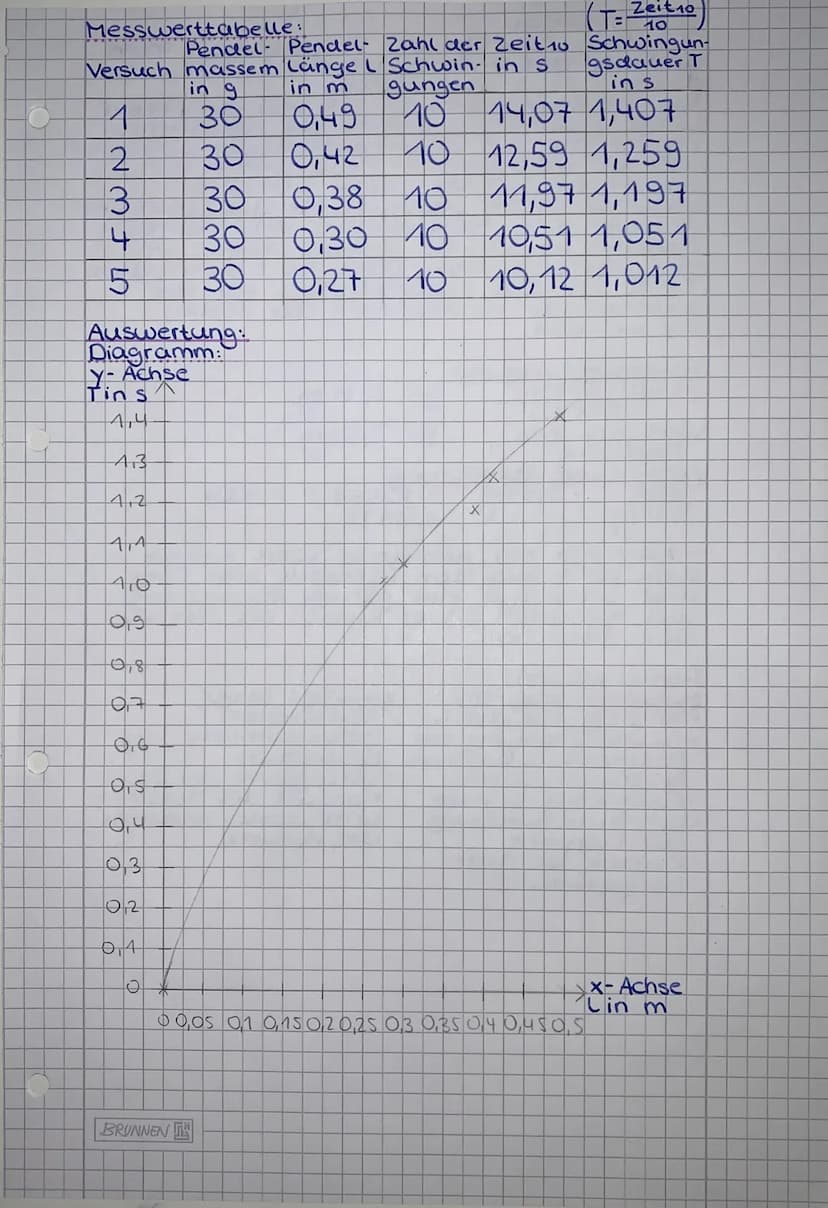 (T = Zeit10 / 10)
Messwerttabelle:
Versuch Pendel-massem in g Pendel-Länge L in m Zahl der Schwin-gungen Zeit10 in s Schwingun-gsdauer T in s
1 30 0,49 10 14,07 1,407
2 30 0,42 10 12,59 1,259
3 30 0,38 10 11,97 1,197
4 30 0,30 10 10,51 1,051
5 30 0,27 10 10,12 1,012
Auswertung:
Diagramm:
y-Achse
T in s
1,4
1,3
1,2
1,1
1,0
0,9
0,8
0,7
0,6
0,5
0,4
0,3
0,2
0,1
0
x-Achse
L in m
0 0,05 0,1 0,15 0,2 0,25 0,3 0,35 0,4 0,45 0,5
BRUNNEN